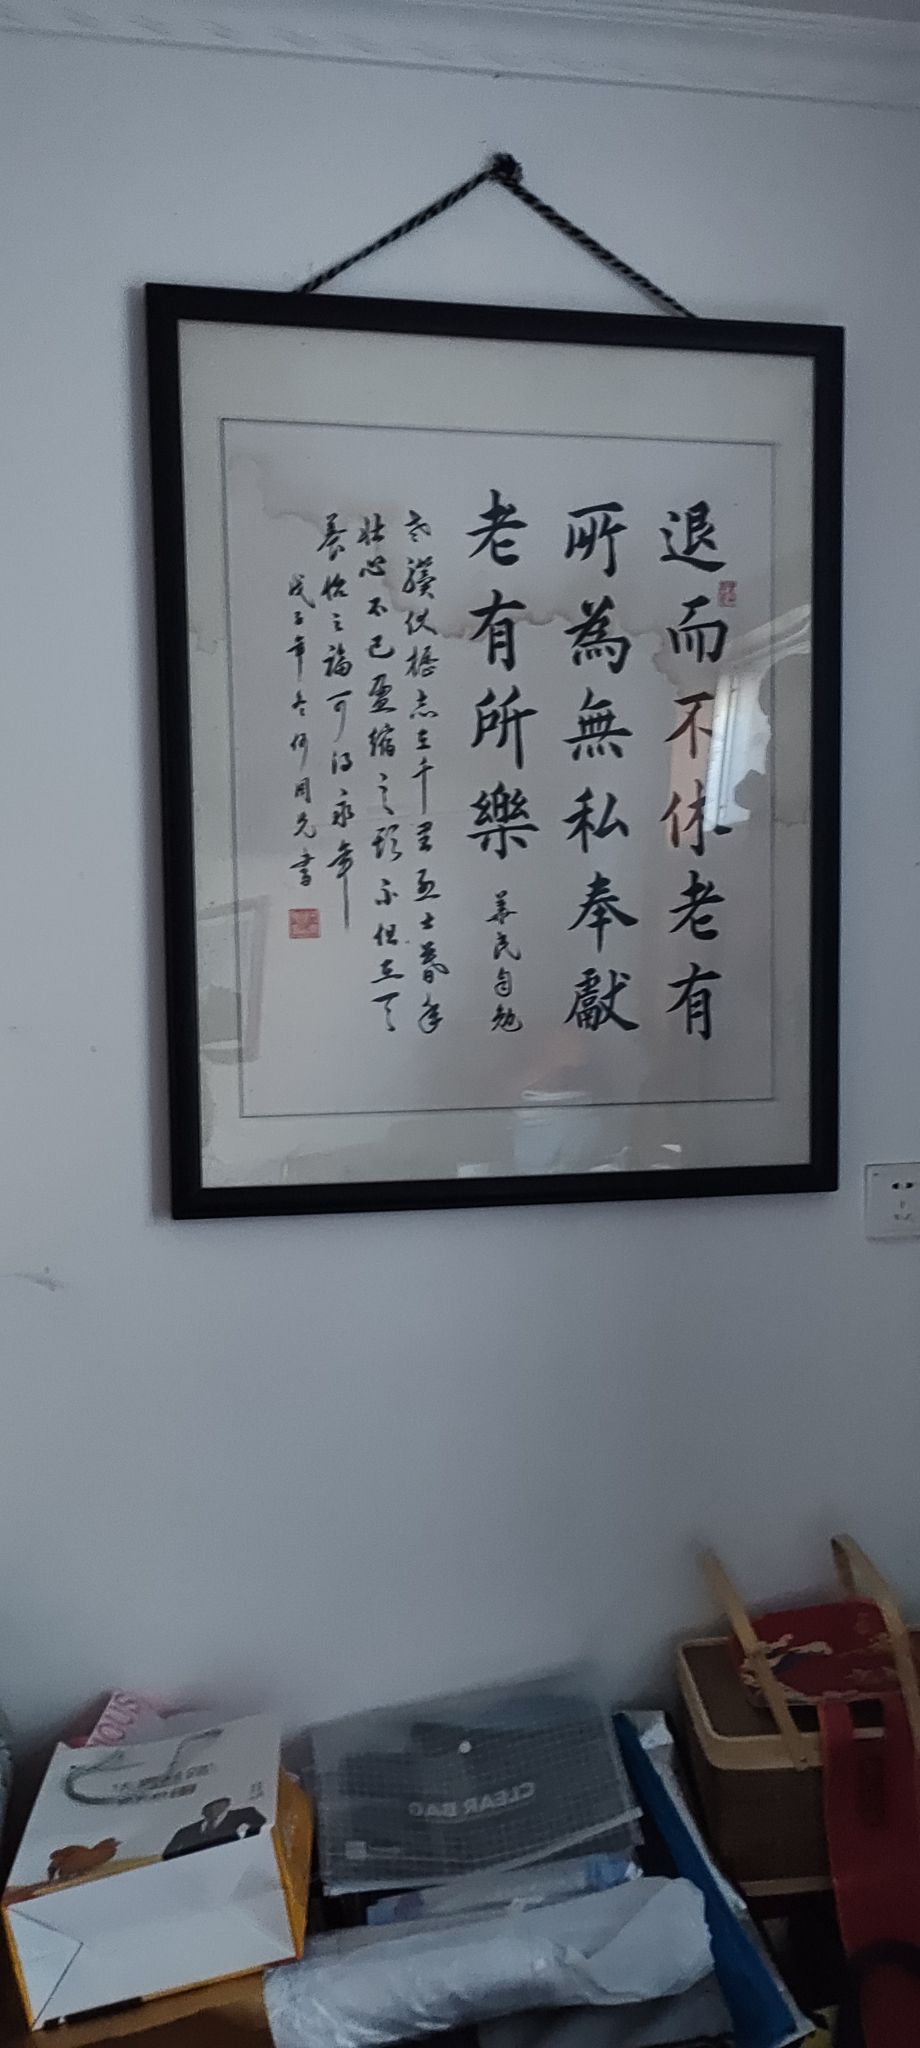 退而不休老有
所為無私奉獻
老有所樂
民自勉
老驥伏櫪志在千里烈士暮年
壯心不已盈縮之期不但在天
養怡之福可得永年
戊子年冬書
CLEAR BAG